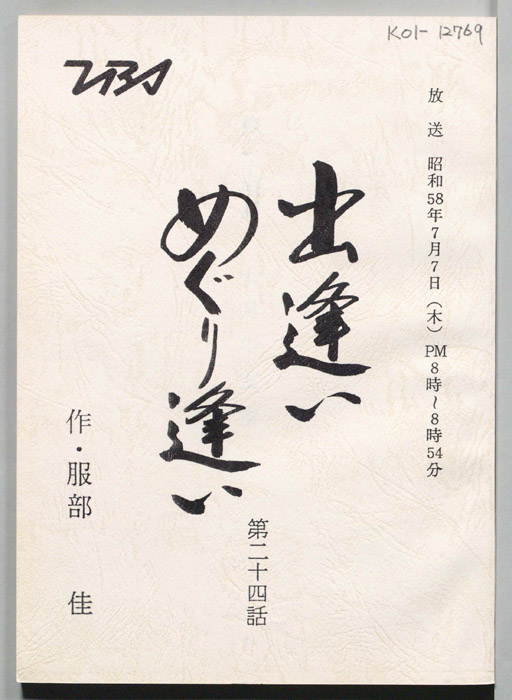 K01-12769
TBS
放送 昭和58年7月7日(木) PM8時~8時54分
出逢い
めぐり逢い
第二十四話
作・服部 佳